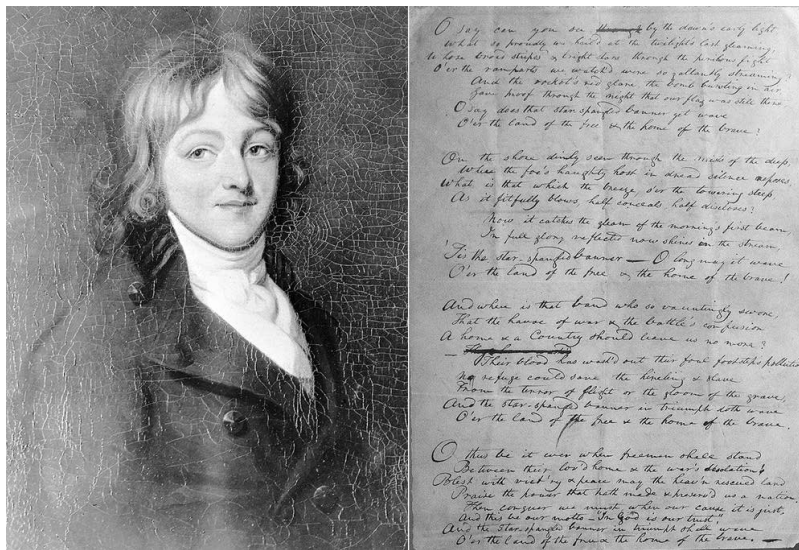 O say can you see through by the dawn's early light
What so proudly we hail'd at the twilight's last gleaming,
Whose broad stripes & bright stars through the perilous fight
O'er the ramparts we watch'd were so gallantly streaming?
And the rocket's red glare, the bomb bursting in air,
Gave proof through the night that our flag was still there
O say does that star-spangled banner yet wave
O'er the land of the free & the home of the brave?
On the shore dimly seen through the mists of the deep,
Where the foe's haughty host in dread silence reposes,
What is that which the breeze, o'er the towering steep
As it fitfully blows, half conceals half discloses?
Now it catches the gleam of the morning's first beam,
In full glory reflected now shines in the stream,
'Tis the star-spangled banner — O long may it wave
O'er the land of the free & the home of the brave!
And where is that band who so vauntingly swore,
That the havoc of war & the battle's confusion
A home & a Country should leave us no more?
—
Their blood has wash'd out their foul footsteps pollution
No refuge could save the hireling & slave
From the terror of flight or the gloom of the grave,
And the star-spangled banner in triumph doth wave
O'er the land of the free & the home of the brave.
O thus be it ever when freemen shall stand
Between their lov'd home & the war's desolation!
Blest with vict'ry & peace may the heav'n rescued land
Praise the power that hath made & preserv'd us a nation
Then conquer we must, when our cause it is just,
And this be our motto — "In God is our trust,"
And the star-spangled banner in triumph shall wave
O'er the land of the free & the home of the brave. —